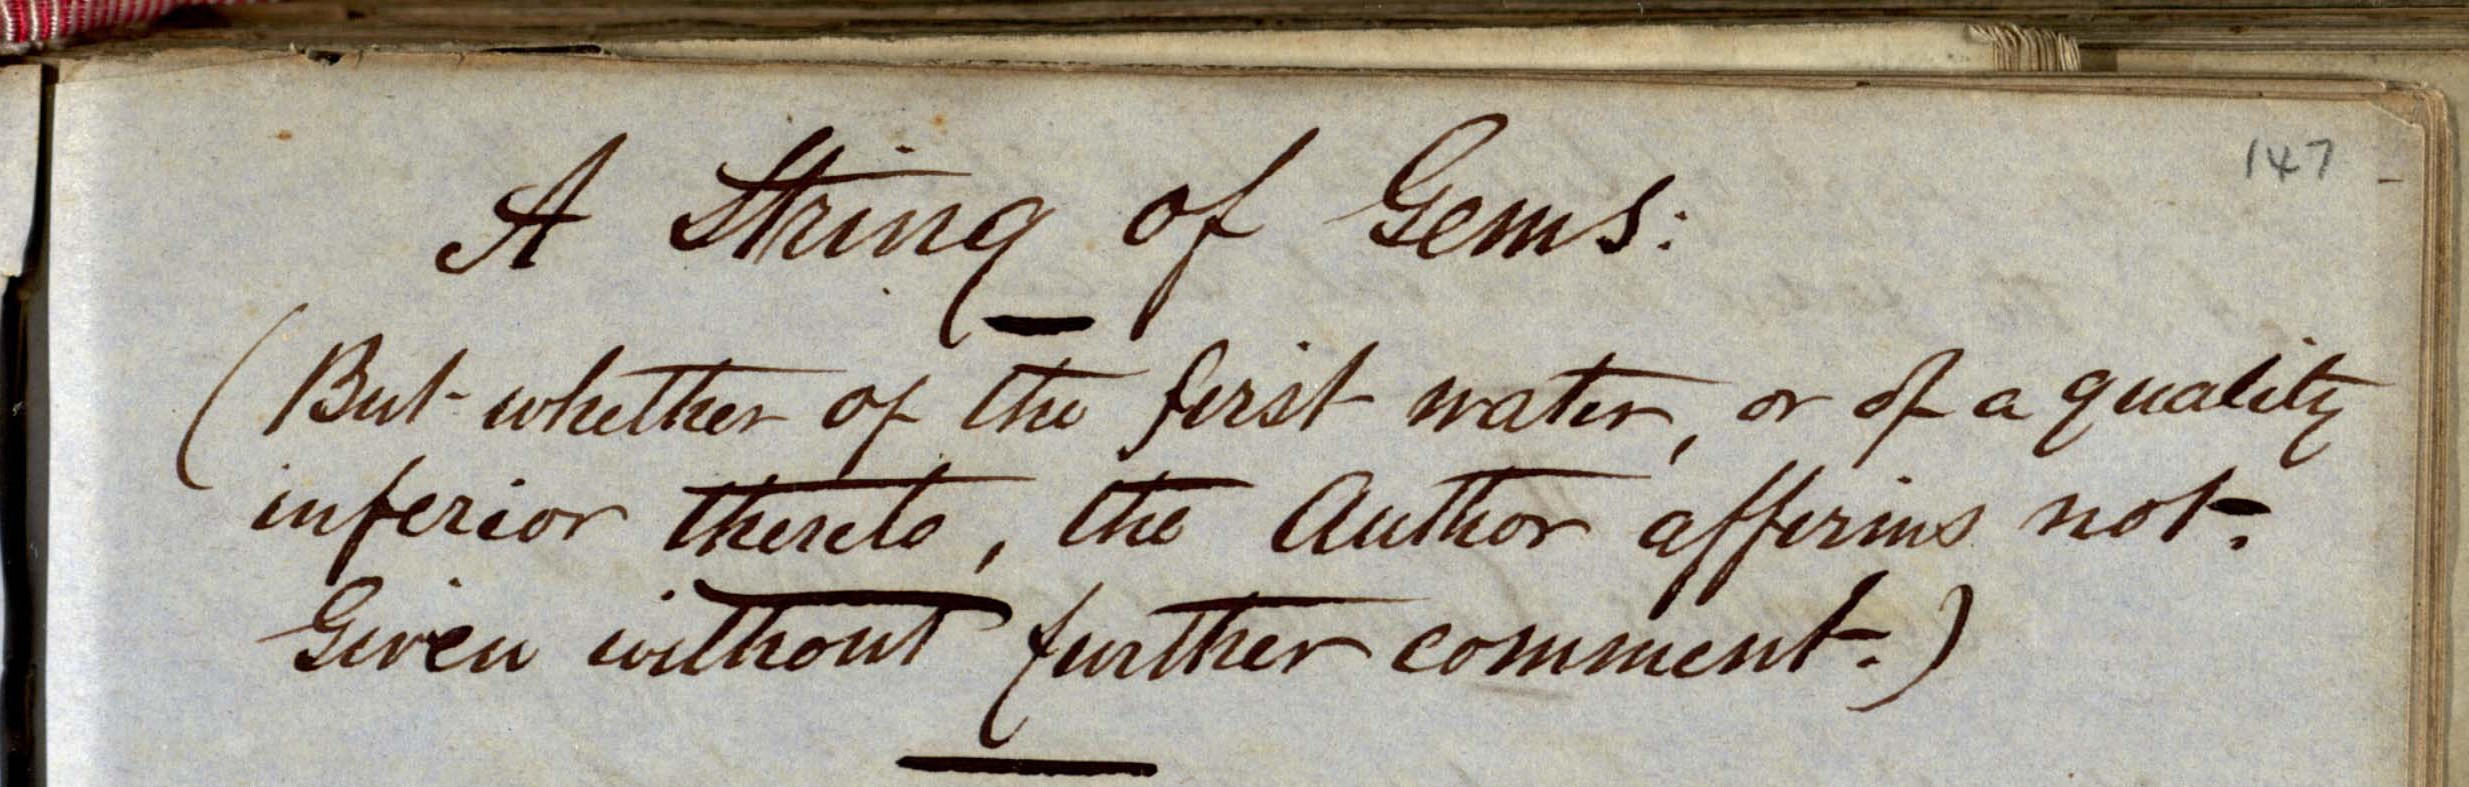 147
A String of Gems:
(But whether of the first water, or of a quality
inferior thereto, the Author affirms not.
Given without further comment.)